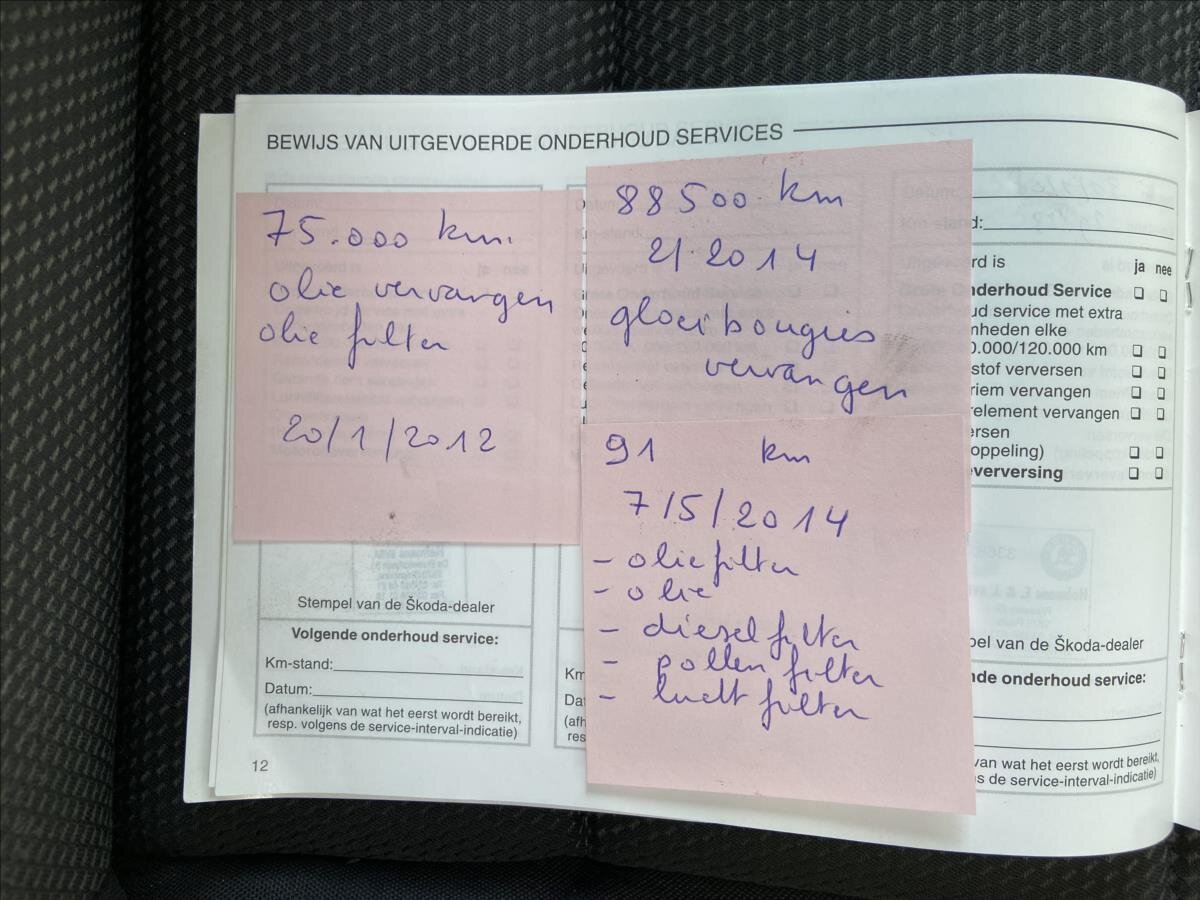 BEWIJS VAN UITGEVOERDE ONDERHOUD SERVICES
75.000 km.
olie vervangen
olie filter
20/1/2012
88500 km
2/ 2014
gloeibougies
vervangen
91 km
7/5/2014
- oliefilter
- olie
- diesel filter
- pollen filter
- lucht filter
Stempel van de Škoda-dealer
Volgende onderhoud service:
Km-stand:
Datum:
(afhankelijk van wat het eerst wordt bereikt,
resp. volgens de service-interval-indicatie)
12
Km
Da
(afh
res
Datum:
Km-stand:
rd is ja nee
nderhoud Service
ud service met extra
mheden elke
0.000/120.000 km
stof verversen
riem vervangen
relement vervangen
ersen
oppeling)
verversing
pel van de Škoda-dealer
nde onderhoud service:
van wat het eerst wordt bereikt,
s de service-interval-indicatie)